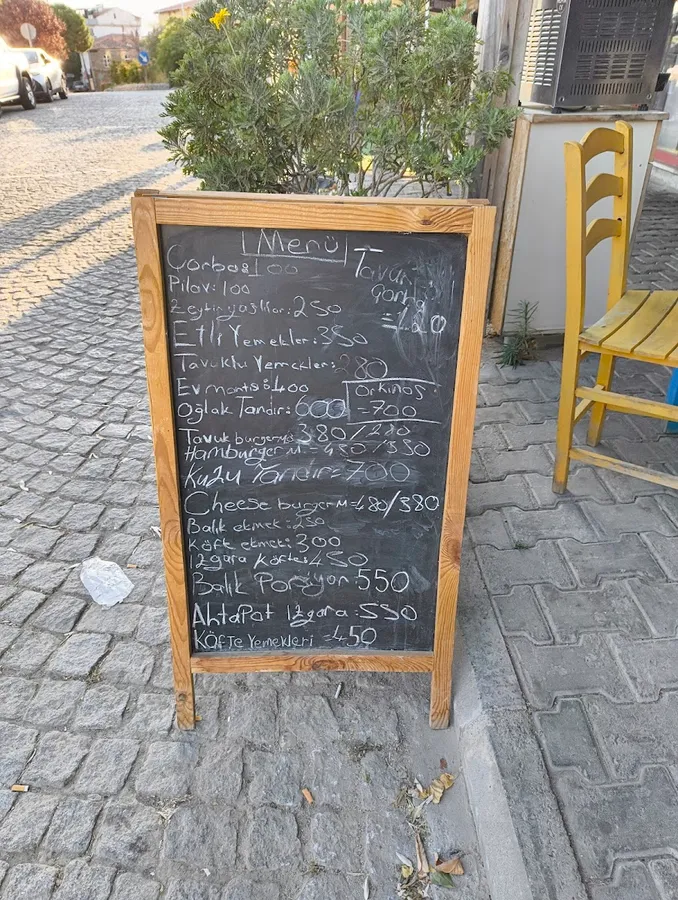 Menü
Çorba: 100
Pilav: 100
Zeytinyağlılar: 250
Etli Yemekler: 350
Tavuklu Yemekler: 280
Ev mantısı: 400
Oğlak Tandır: 600
Tavuk burger M: 380/280
Hamburger M = 480/350
Kuzu Tandır = 700
Cheese burger M = 480/380
Balık ekmek: 250
Köfte ekmek: 300
Izgara Köfte: 450
Balık Porsiyon 550
Ahtapot Izgara: 550
Köfte Yemekleri = 450
Tavan
= 120
Orkinos
= 700